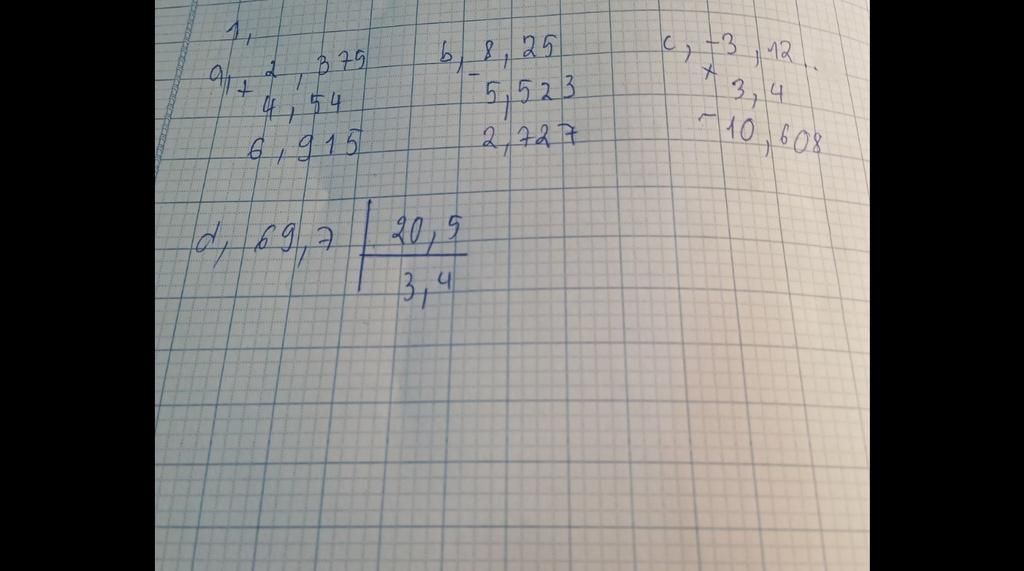 1,
a, + 2,375
4,54
6,915
b, - 8,25
5,523
2,727
c, -3,12
x 3,4
-10,608
d, 69,7 | 20,5
3,4